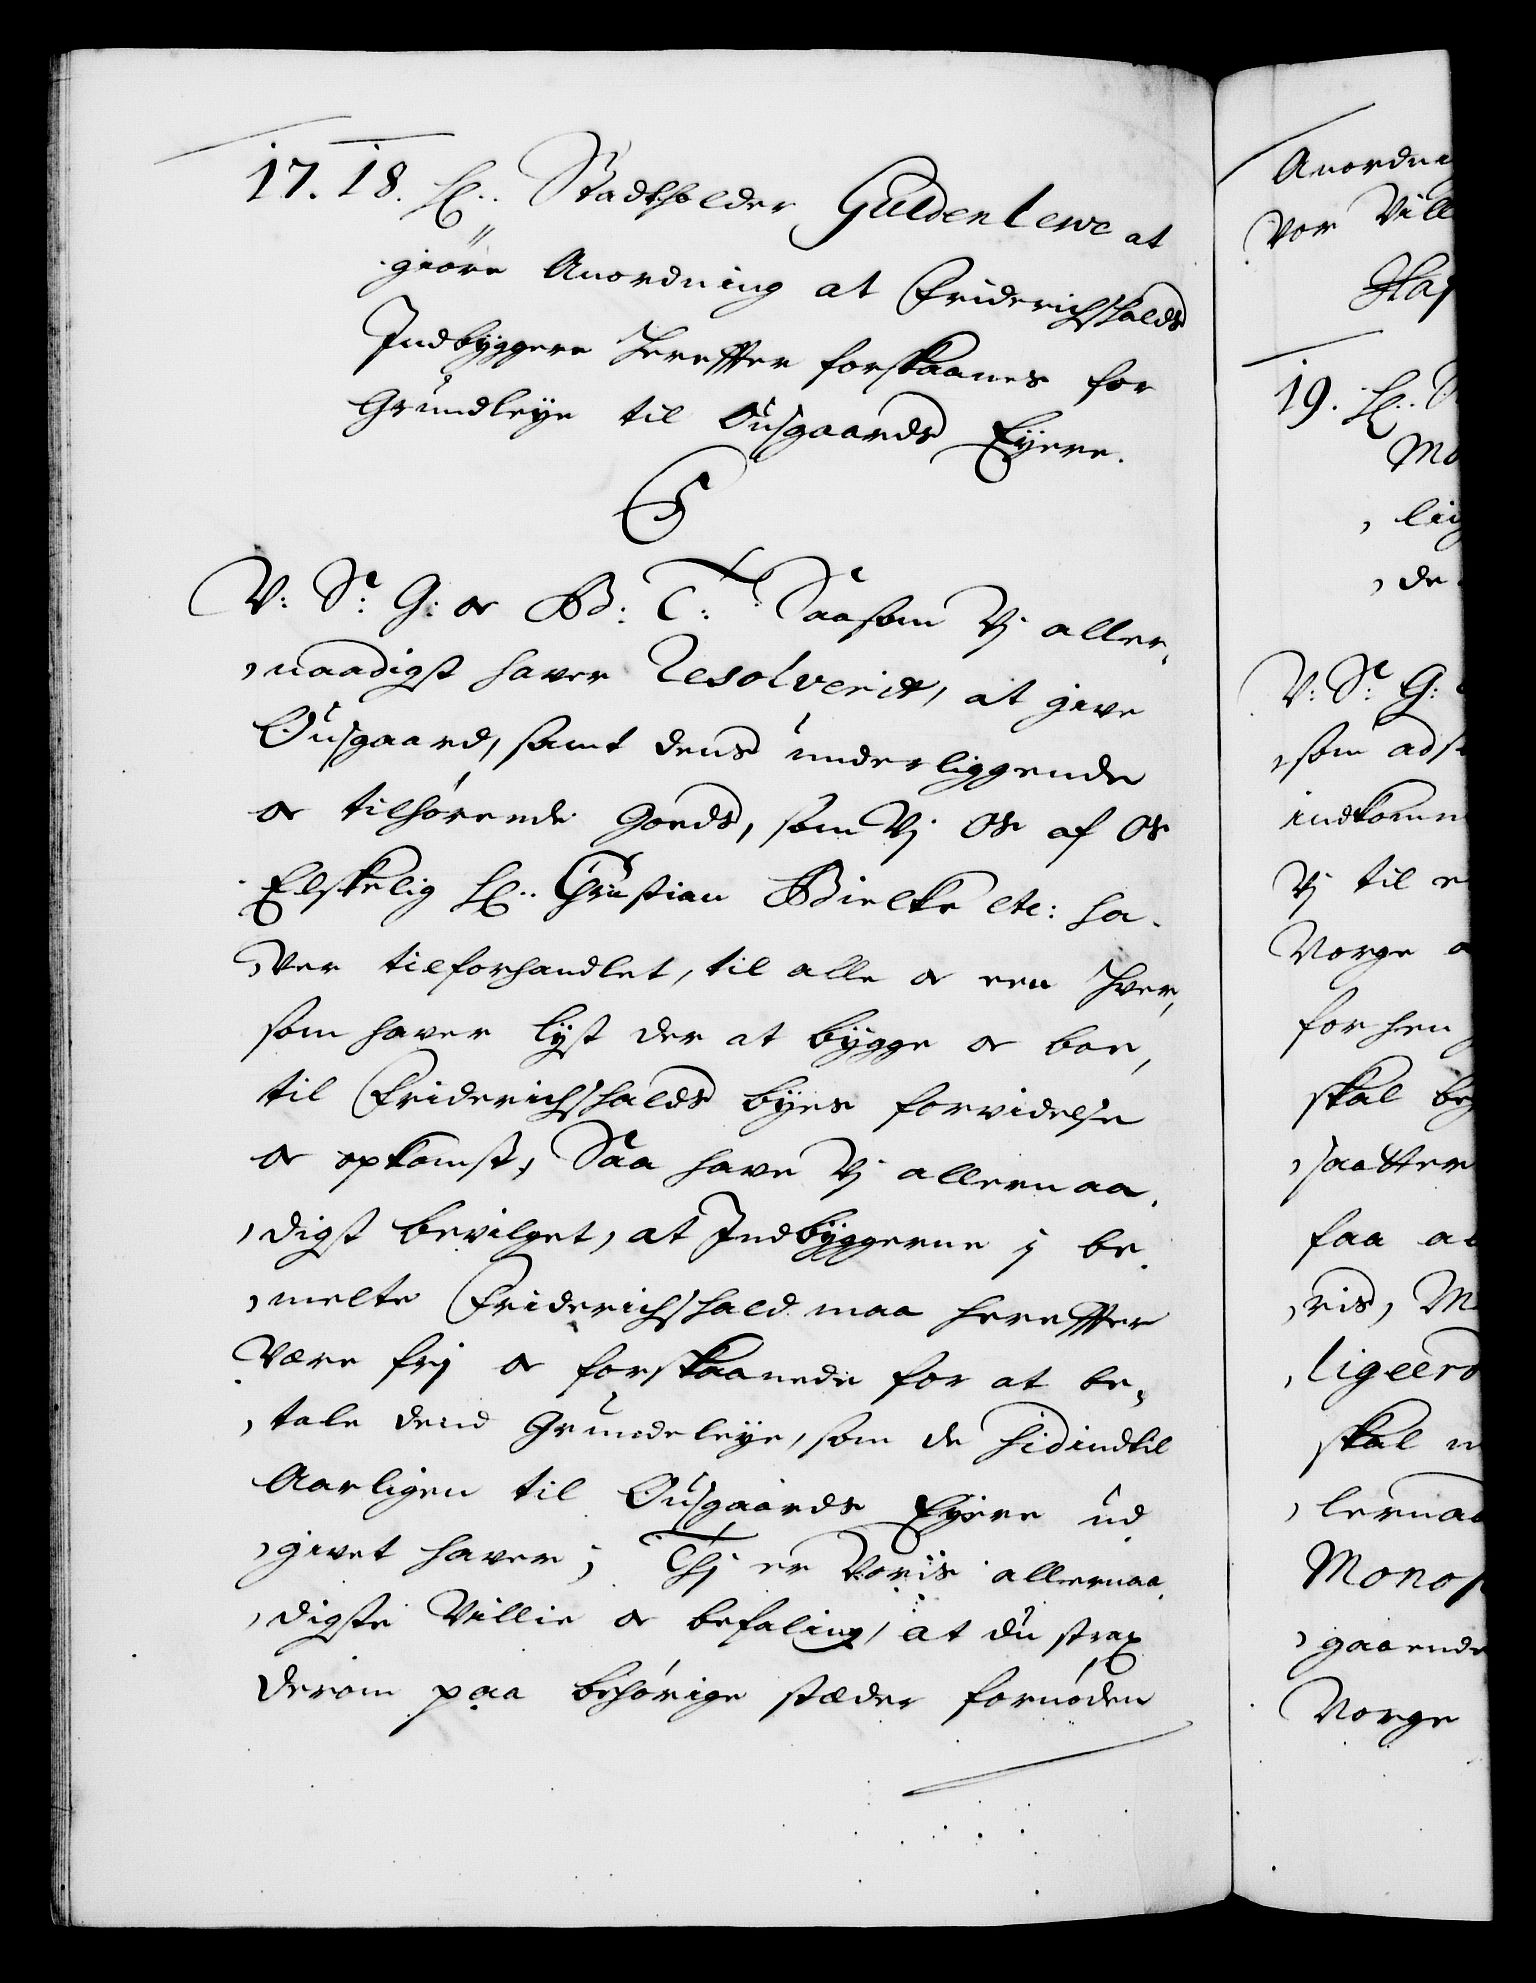 17. 18. H:. Stadtholder Guldenlewe at
giöre Anordning at Friderichshalds
Indbyggere herefter forskaanes for
Grundleye til Ousgaards Eyere.
C5
V: S: G: oc B: T: Saasom Vi aller
naadigst haver Resolverit, at give
Ousgaard, samt dens underliggende
oc tilhørende Goeds, som Vi Os af Os
Elskelig H:. Christian Bielke etc: ha
ver tilforhandlet, til alle oc een hver,
som haver lyst der at bygge oc boe,
til Friderichshalds byes forvidelse
oc opkomst, Saa have Vi allernaa
digst bevilget, at Indbyggerne i be
melte Friderichshald maa herefter
være frj oc forskaanede for at be
tale dend Grundeleye, som de hidindtil
Aarligen til Ousgaards Eyere ud
givet haver; Thj er Voris allernaa
digste Villie oc befaling, at du strax
derom paa behørige stæder fornøden
Anordni
Vor Vill
Haf
19. H:.
Mo
lig
de
V: S: G:
som ads
indkomm
Vi til e
Norge
forhen
skal beg
saatter
faa a
ris, M
ligeero
skal
lernaa
Monop
gaaende
Norge